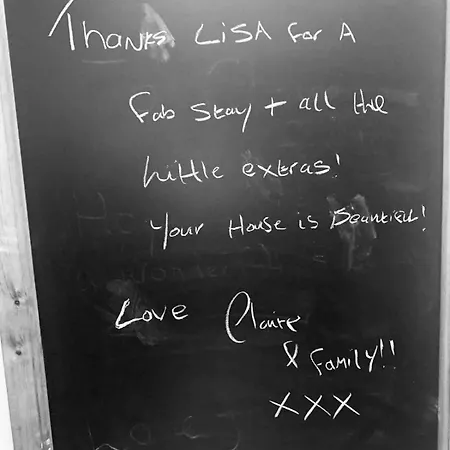 Thanks LiSA For A
Fab stay + all the
little extras!
Your House is Beautiful!
Love Claire
& Family!!
XXX